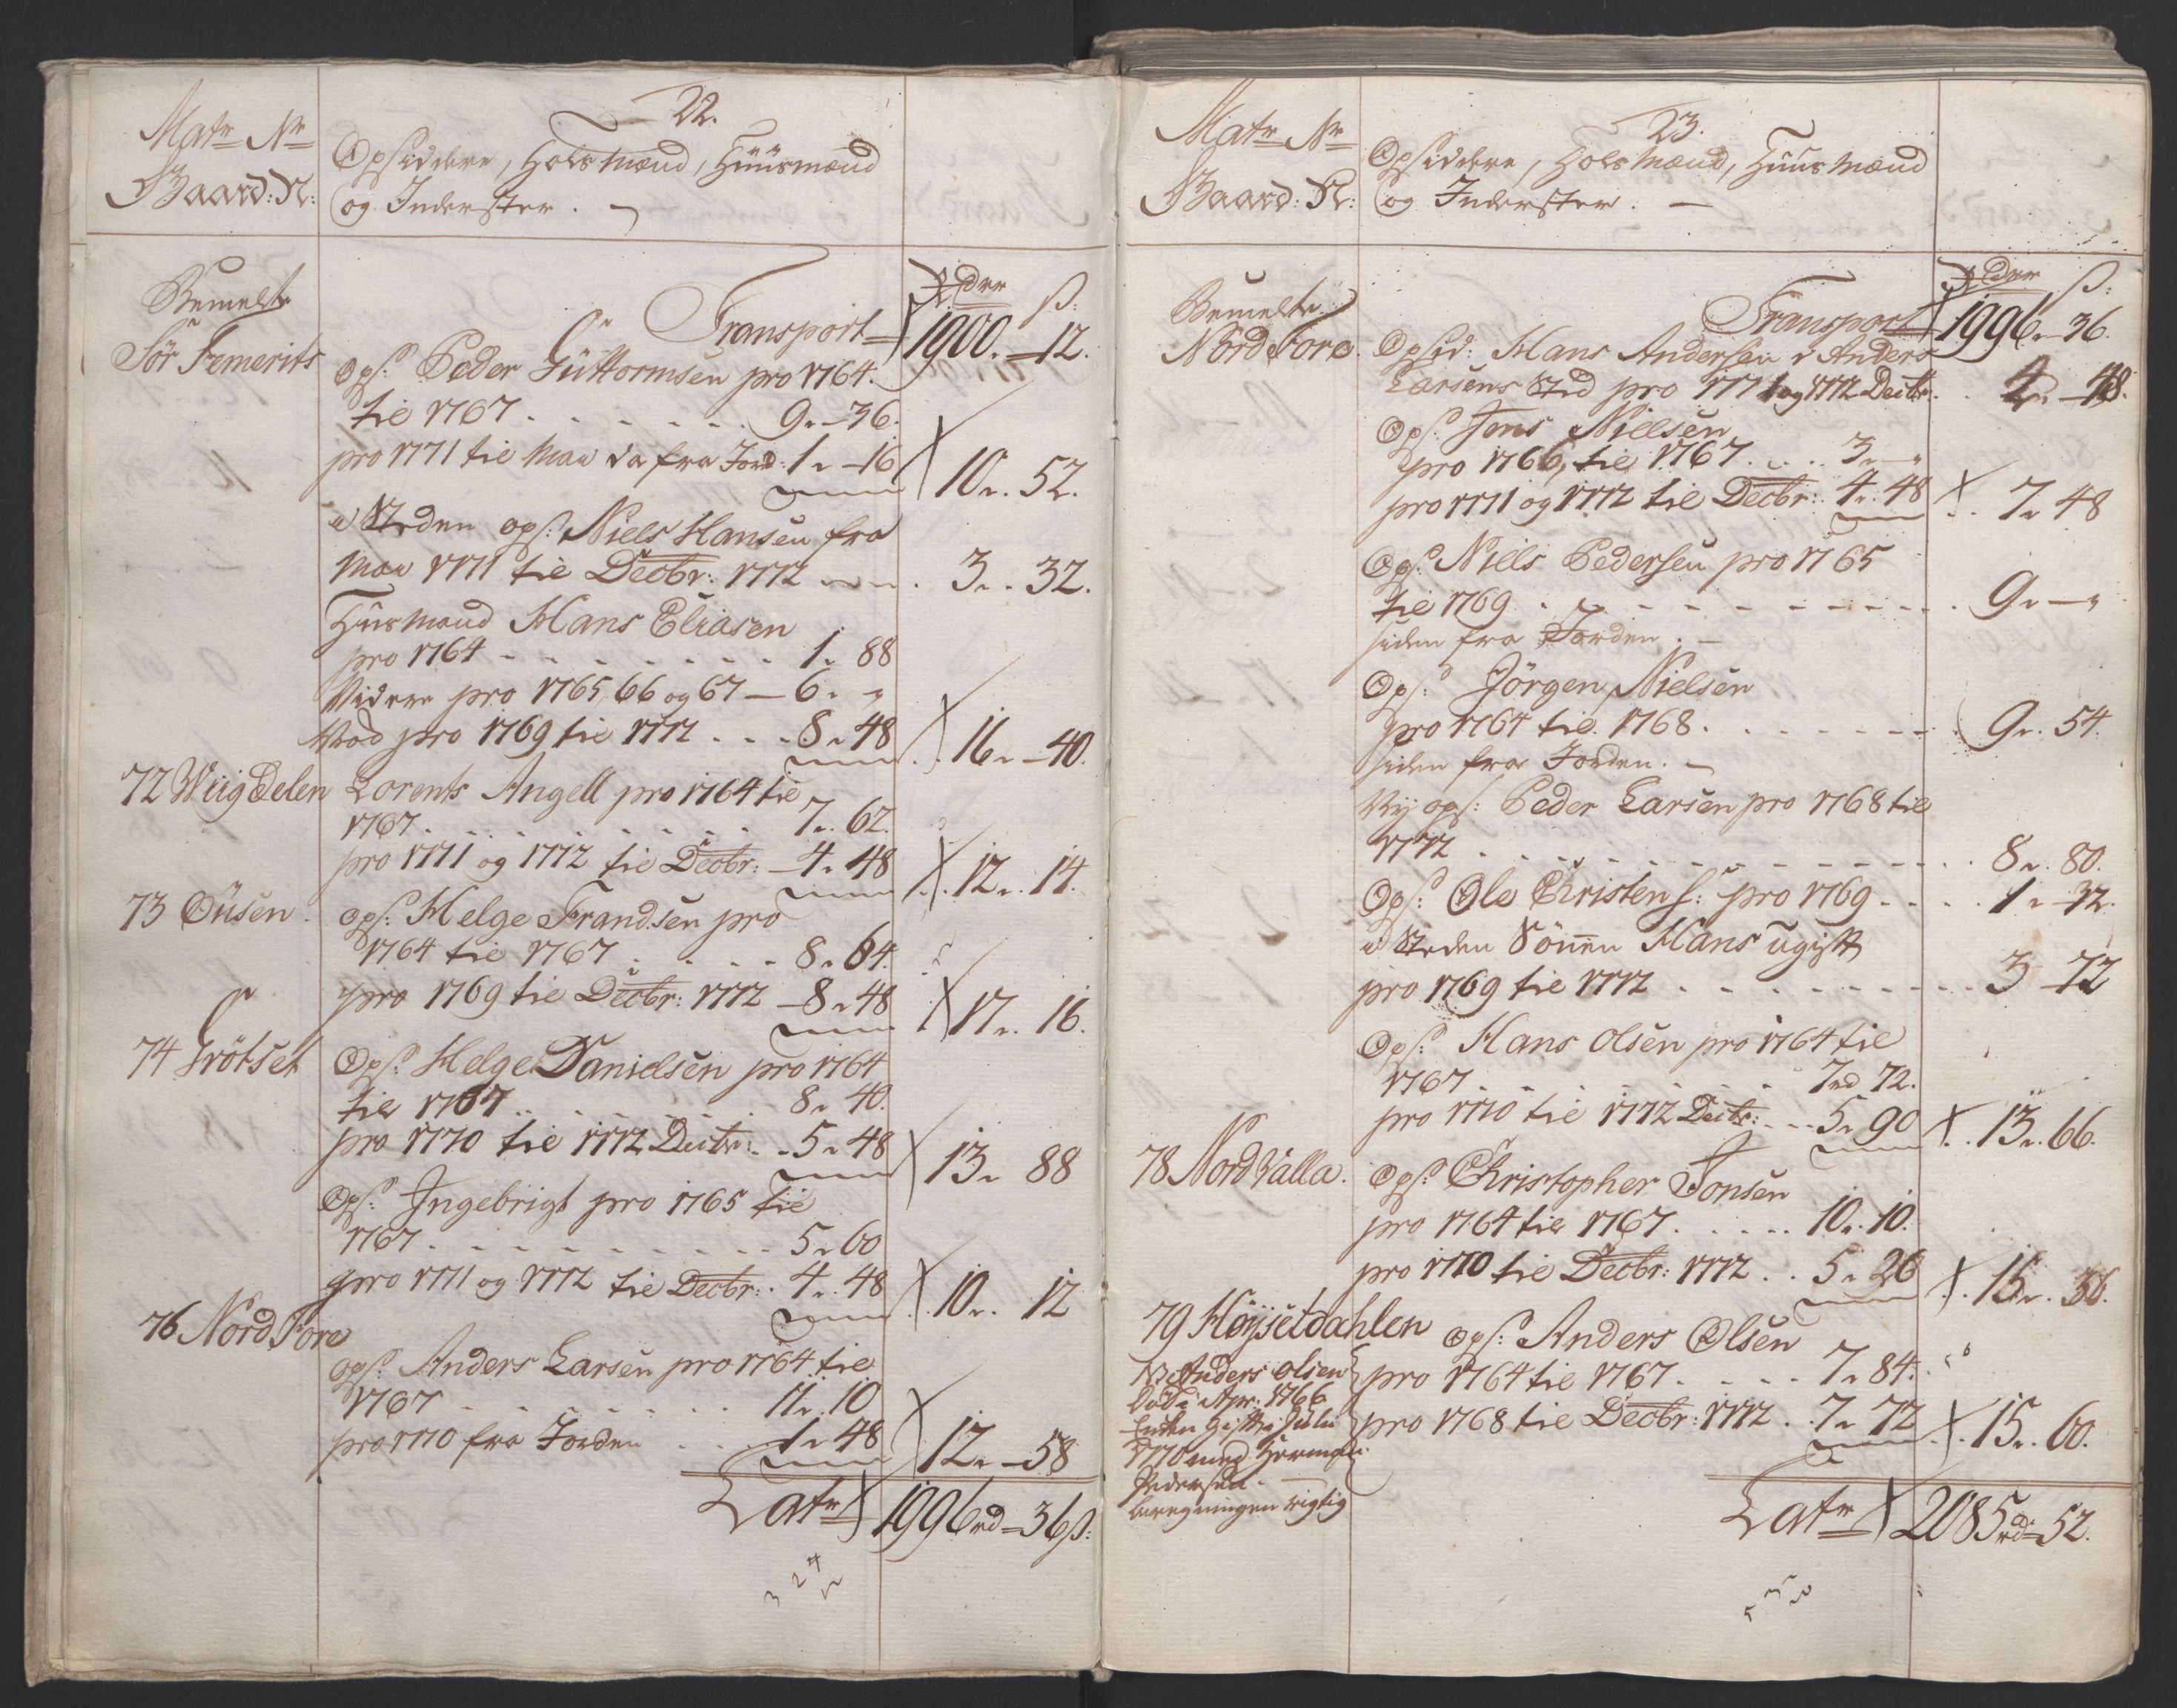 22.
Matr Nr
Gaard: N:
Opsiddere, Holsmænd, Huusmænd
og Inderster.
Bemelte
Sör Femerits
Rdr ß:
Transport 1900. 12.
Ops: Peder Guttormsen pro 1764.
til 1767 . . . . . . 9. 36.
pro 1771 til May da fra Jord: 1. 16 10. 52.
i Steden ops: Niels Hansen fra
May 1771 til Decbr: 1772 3. 32.
Huusmand Hans Eliasen
pro 1764 . . . . . . . 1. 88
Videre pro 1765, 66 og 67 — 6. "
pro 1769 til 1772 . . . 8. 48 16. 40.
72 Wiigdelen Lorents Angell pro 1764 til
1767 . . . . . . . 7. 62.
pro 1771 og 1772 til Decbr: 4. 48 12. 14.
73 Ousen. ops: Helge Frandsen pro
1764 til 1767 . . . . 8. 64.
pro 1769 til Decbr: 1772 8. 48 17. 16.
74 Grötset Ops: Helge Danielsen pro 1764
til 1767 . . . . . . 8. 40.
pro 1770 til 1772 Decbr: . . 5. 48 13. 88
Ops: Ingebrigt pro 1765 til
1767 . . . . . . . . . 5. 60
pro 1771 og 1772 til Decbr: . 4. 48 10. 12
76 Nord Fore
ops: Anders Larsen pro 1764 til
1767 . . . . . . . 11. 10
pro 1770 fra Jorden . . . 1. 48 12. 58
Latr 1996rd 36ß:
3 2 4
23.
Matr Nr
Gaard: N:
Opsiddere, Holsmænd, Huusmænd
og Inderster.
Bemelte
Nord Fore.
Rdr ß:
Transport 1996. 36.
Opsid: Hans Andersen i Anders
Larsens Sted pro 1771 og 1772 Decbr. 4. 48.
Ops: Jens Nielsen
pro 1766, til 1767 . . . . 3. "
pro 1771 og 1772 til Decbr: 4. 48 7. 48
Ops: Niels Pedersen pro 1765
til 1769 . . . . . . . . . 9. "
siden fra Jorden.
Ops: Jörgen Nielsen
pro 1764 til 1768 . . . . . . . 9. 54.
siden fra Jorden.
Ny ops: Peder Larsen pro 1768 til
1772 . . . . . . . . . . . 8. 80.
Ops: Ole Christens: pro 1769 . . . . 1. 32.
i Steden Sönnen Hans ugift
pro 1769 til 1772 . . . . . . . . 3 72
Ops: Hans Olsen pro 1764 til
1767 . . . . . . . 7rd 72.
pro 1770 til 1772 Decbr: . . . 5. 90 13. 66.
78 Nord Valla. Ops: Christopher Jonsen
pro 1764 til 1767 . . . . . 10. 10.
pro 1770 til Decbr: 1772 . . 5. 26 15. 36.
79 Høysetdahlen ops: Anders Olsen
pro 1764 til 1767 . . . . 7. 84.
pro 1768 til Decbr: 1772 . . 7. 72 15. 60.
Anders Olsen
död i Apr: 1766
Enken Gift i Julii
1770 med
Pedersen
beregningen rigtig
Latr 2085rd 52.